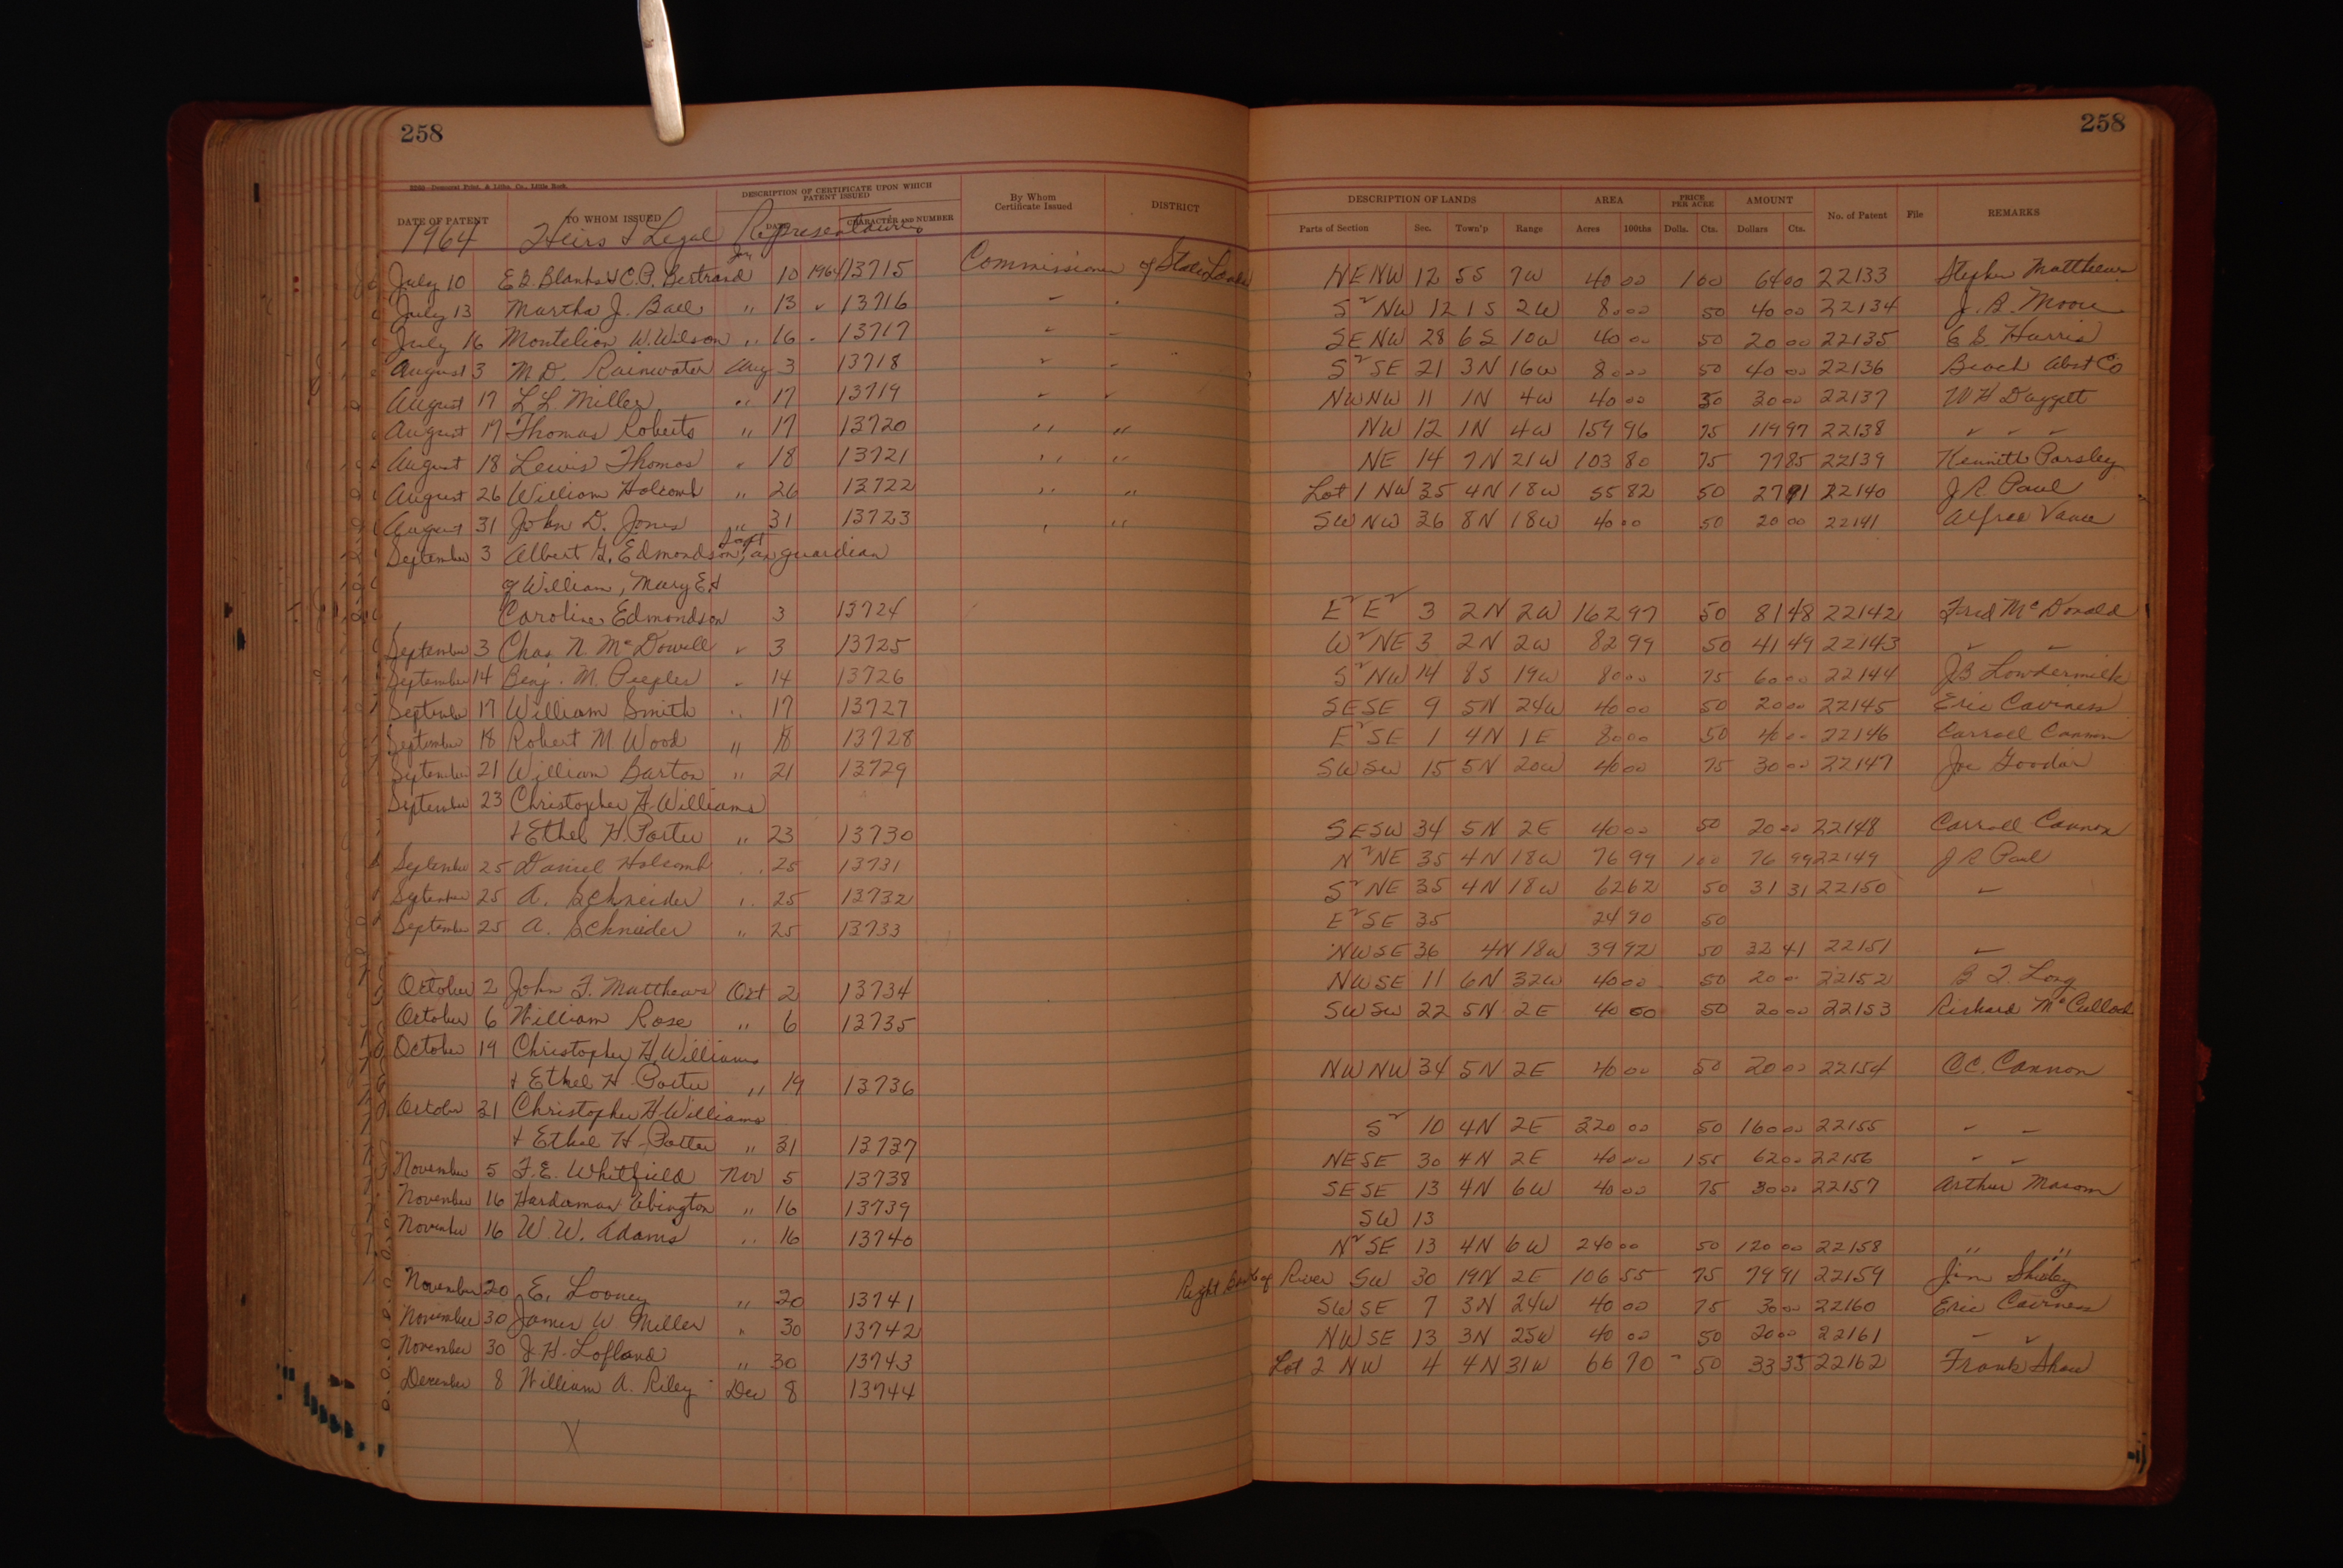 258
258
2260—Democrat Print. & Litho. Co., Little Rock
DATE OF PATENT TO WHOM ISSUED DESCRIPTION OF CERTIFICATE UPON WHICH PATENT ISSUED DATE CHARACTER AND NUMBER By Whom Certificate Issued DISTRICT DESCRIPTION OF LANDS Parts of Section Sec. Town'p Range AREA Acres 100ths PRICE PER ACRE Dolls. Cts. AMOUNT Dollars Cts. No. of Patent File REMARKS
1964 Heirs & Legal Representatives
July 10 E.B. Blanks & C.P. Bertrand 10 1964 13715 Commissioner of State Lands NE NW 12 5S 7W 40 00 1 00 64 00 22133 Stephen Matthews
July 13 Martha J. Ball " 13 " 13716 S² NW 12 1S 2W 80 00 50 40 00 22134 J. B. Moore
July 16 Montelion W. Wilson " 16 " 13717 SE NW 28 6S 10W 40 00 50 20 00 22135 E S Harris
August 3 M D. Rainwater Aug 3 13718 S² SE 21 3N 16W 80 00 50 40 00 22136 Beach Abst Co
August 17 L L. Miller " 17 13719 NW NW 11 1N 4W 40 00 30 00 22137 W H Daggett
August 17 Thomas Roberts " 17 13720 " " NW 12 1N 4W 159 96 75 119 97 22138 " " "
August 18 Lewis Thomas " 18 13721 " " NE 14 7N 21W 103 80 75 77 85 22139 Kenneth Parsley
August 26 William Holcomb " 26 13722 " " Lot 1 NW 35 4N 18W 55 82 50 27 91 22140 J R Paul
August 31 John D. Jones " 31 13723 " " SW NW 36 8N 18W 40 00 50 20 00 22141 Alfred Vance
September 3 Albert G. Edmondson, as guardian Sept
of William, Mary E &
Caroline Edmondson 3 13724 E² E² 3 2N 2W 162 97 50 81 48 22142 Fred McDonald
September 3 Chas N. McDowell " 3 13725 W² NE 3 2N 2W 82 99 50 41 49 22143 " "
September 14 Benj. M. Peeples " 14 13726 S² NW 14 8S 19W 80 00 75 60 00 22144 J B Lowdermilk
September 17 William Smith " 17 13727 SE SE 9 5N 24W 40 00 50 20 00 22145 Eric Caviness
September 18 Robert M Wood " 18 13728 E² SE 1 4N 1E 80 00 50 40 00 22146 Carroll Cannon
September 21 William Barton " 21 13729 SW SW 15 5N 20W 40 00 75 30 00 22147 Joe
September 23 Christopher H. Williams
& Ethel H. Porter " 23 13730 SE SW 34 5N 2E 40 00 50 20 00 22148 Carroll Cannon
September 25 Daniel Holcomb " 25 13731 N² NE 35 4N 18W 76 99 1 00 76 99 22149 J R Paul
September 25 A. Schneider " 25 13732 S² NE 35 4N 18W 62 62 50 31 31 22150 "
September 25 A. Schnieder " 25 13733 E² SE 35 24 90 50
NW SE 36 4N 18W 39 92 50 32 41 22151 "
October 2 John F. Matthews Oct 2 13734 NW SE 11 6N 32W 40 00 50 20 00 22152 B F. Long
October 6 William Rose " 6 13735 SW SW 22 5N 2E 40 00 50 20 00 22153 Richard McCulloch
October 19 Christopher H. Williams
& Ethel H. Porter " 19 13736 NW NW 34 5N 2E 40 00 50 20 00 22154 C.C. Cannon
October 31 Christopher H Williams
& Ethel H. Porter " 31 13737 S² 10 4N 2E 320 00 50 160 00 22155 " "
November 5 F. E. Whitfield Nov 5 13738 NE SE 30 4N 2E 40 00 1 55 62 00 22156 " "
November 16 Hardaman Abington " 16 13739 SE SE 13 4N 6W 40 00 75 30 00 22157 Arthur Macom
November 16 W. W. Adams " 16 13740 SW 13
N² SE 13 4N 6W 240 00 50 120 00 22158 " "
November 20 E. Looney " 20 13741 Right Bank of River SW 30 19N 2E 106 55 75 79 91 22159 Jim Shirley
November 30 James W Miller " 30 13742 SW SE 7 3N 24W 40 00 75 30 00 22160 Eric Caviness
November 30 J. H. Lofland " 30 13743 NW SE 13 3N 25W 40 00 50 20 00 22161 " "
December 8 William A. Riley Dec 8 13744 Lot 2 NW 4 4N 31W 66 70 50 33 35 22162 Frank Shaw
X